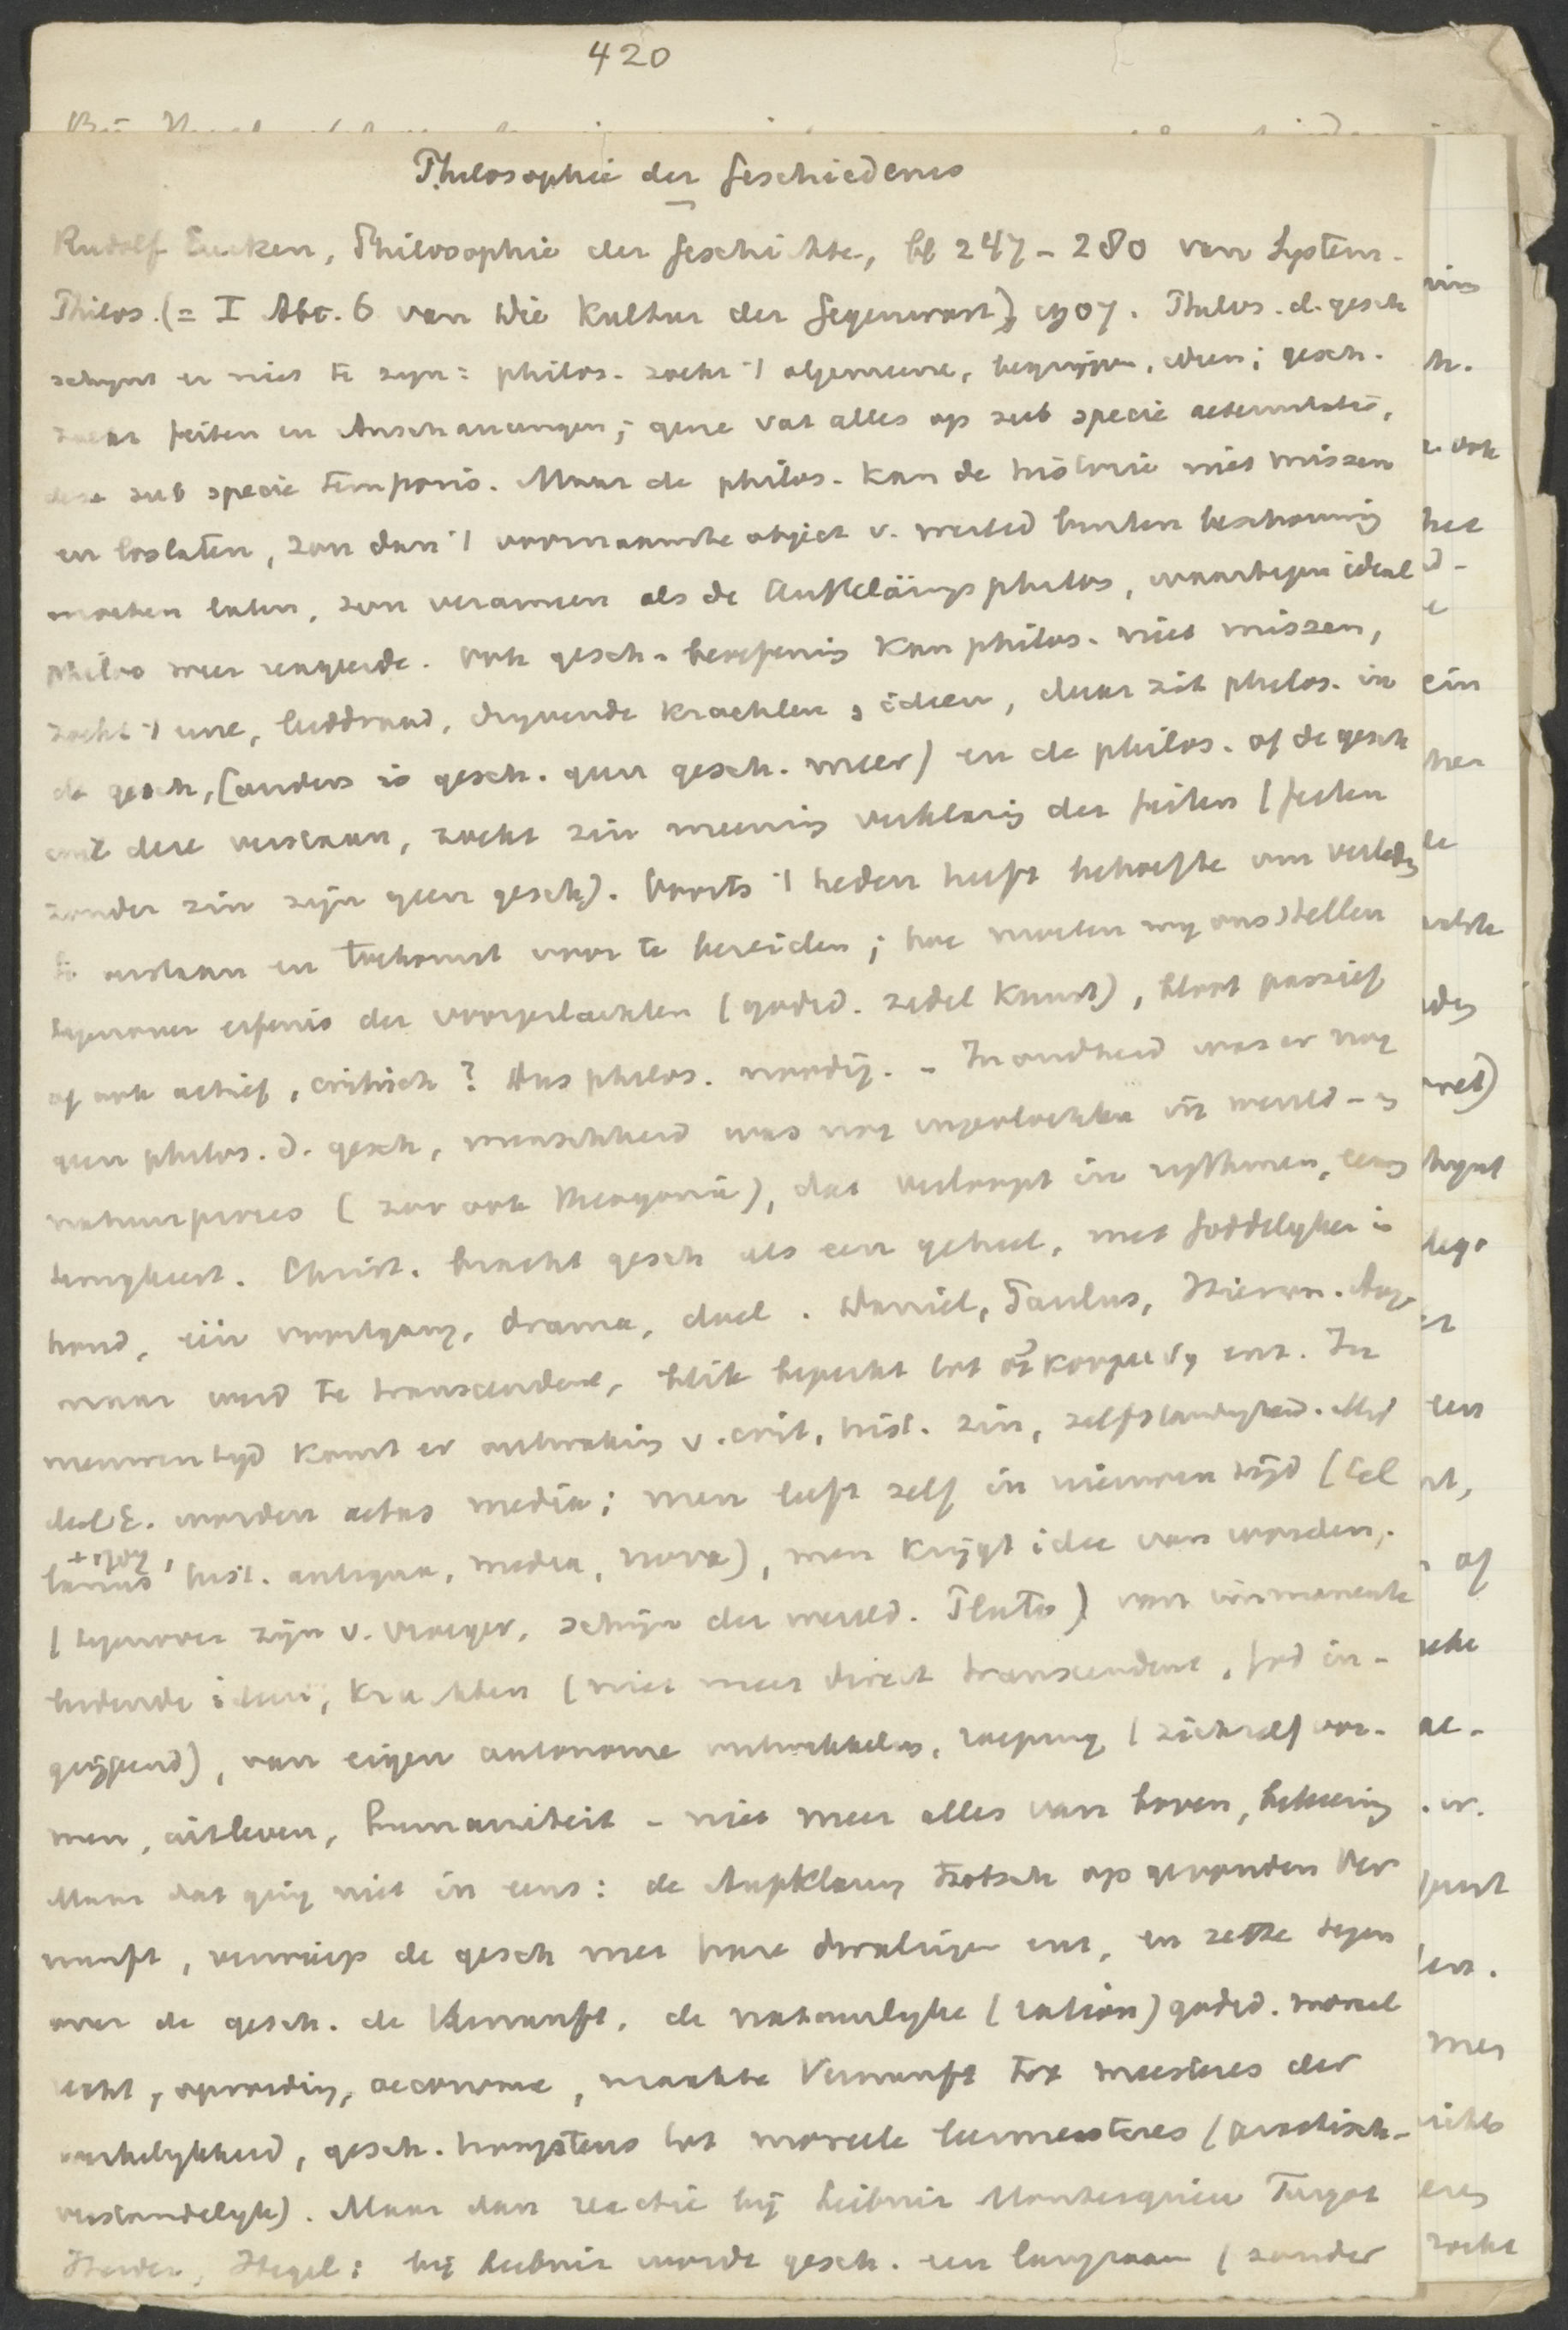 420
Philosophie der Geschiedenis
Rudolf Eucken, Philosophie der Geschichte, bl 247-280 van System.
Philos. (= I Abt. 6 van Die Kultur der Gegenwart), 1907. Philos. d. gesch
schynt er niet te zyn: philos. zoekt 't algemeene, begrijpen, ideen; gesch.
zoekt feiten en Anschauungen; gene vat alles op sub specie aeternitatis,
deze sub specie temporis. Maar de philos. kan de historie niet missen
en loslaten, zou dan 't voornaamste object v. wereld buiten beschouwing
moeten laten, zou verarmen als de Aufklärungsphilos, waartegen ideal
philos weer reageerde. Ook gesch. beoefening kan philos. niet missen,
zoekt 't eene, leiddraad, dryvende krachten, ideen, daar zit philos. in
de gesch, (anders is gesch. geen gesch. meer) en de philos. of de gesch
wil deze verstaan, zoekt zin meening verklaring der feiten (feiten
zonder zin zijn geen gesch). Voorts 't heden heeft behoefte om verleden
te verstaan en toekomst voor te bereiden; hoe moeten wy ons stellen
tegenover erfenis der voorgeslachten (godsd. zedel kunst), bloot passief
of ook actief, critisch? Dus philos. noodig. - In oudheid was er nog
geen philos. d. gesch, menschheid was nog ingevlochten in wereld- en
natuurproces (zoo ook theogonie), dat verloopt in rythmen, eeuwig
terugkeert. Christ. bracht gesch als een geheel, met Goddelyken in
houd, één voortgang, drama, doel. Daniel, Paulus, Hieron. Aug.
maar werd te transcendent, blik beperkt tot enz. In
nieuwen tyd komt er ontwaking v. crit, hist. zin, zelfstandigheid. Mid
deleE. worden aetas media; men leeft zelf in nieuwen tijd (Cel
larius + 1707, hist. antiqua, media, nova), men krijgt idee van worden,
(tegenover zijn v. vroeger, schijn der wereld. Plato) van immanente
leidende ideen, krachten (niet meer direct transcendent, God in-
grijpend), van eigen autonome ontwikkeling, roeping (zichzelf vor-
men, uitleven, humaniteit - niet meer alles van boven, bekeering
Maar dat ging niet in eens: de Aufklarung trotsch op gevonden Ver
nunft, verwierp de gesch met hare dwalingen enz, en zette tegen
over de gesch. de Vernunft, de natuurlyke (ration) godsd. moraal
recht, opvoeding, oeconomie, maakte Vernunft tot meesteres der
werkelykheid, gesch. hoogstens tot moreele leermeesteres (practisch-
verstandelyk). Maar dan reactie bij Leibniz Montesquieu Turgot
Herder, Hegel: bij Leibniz wordt gesch. een langzaam (zonder